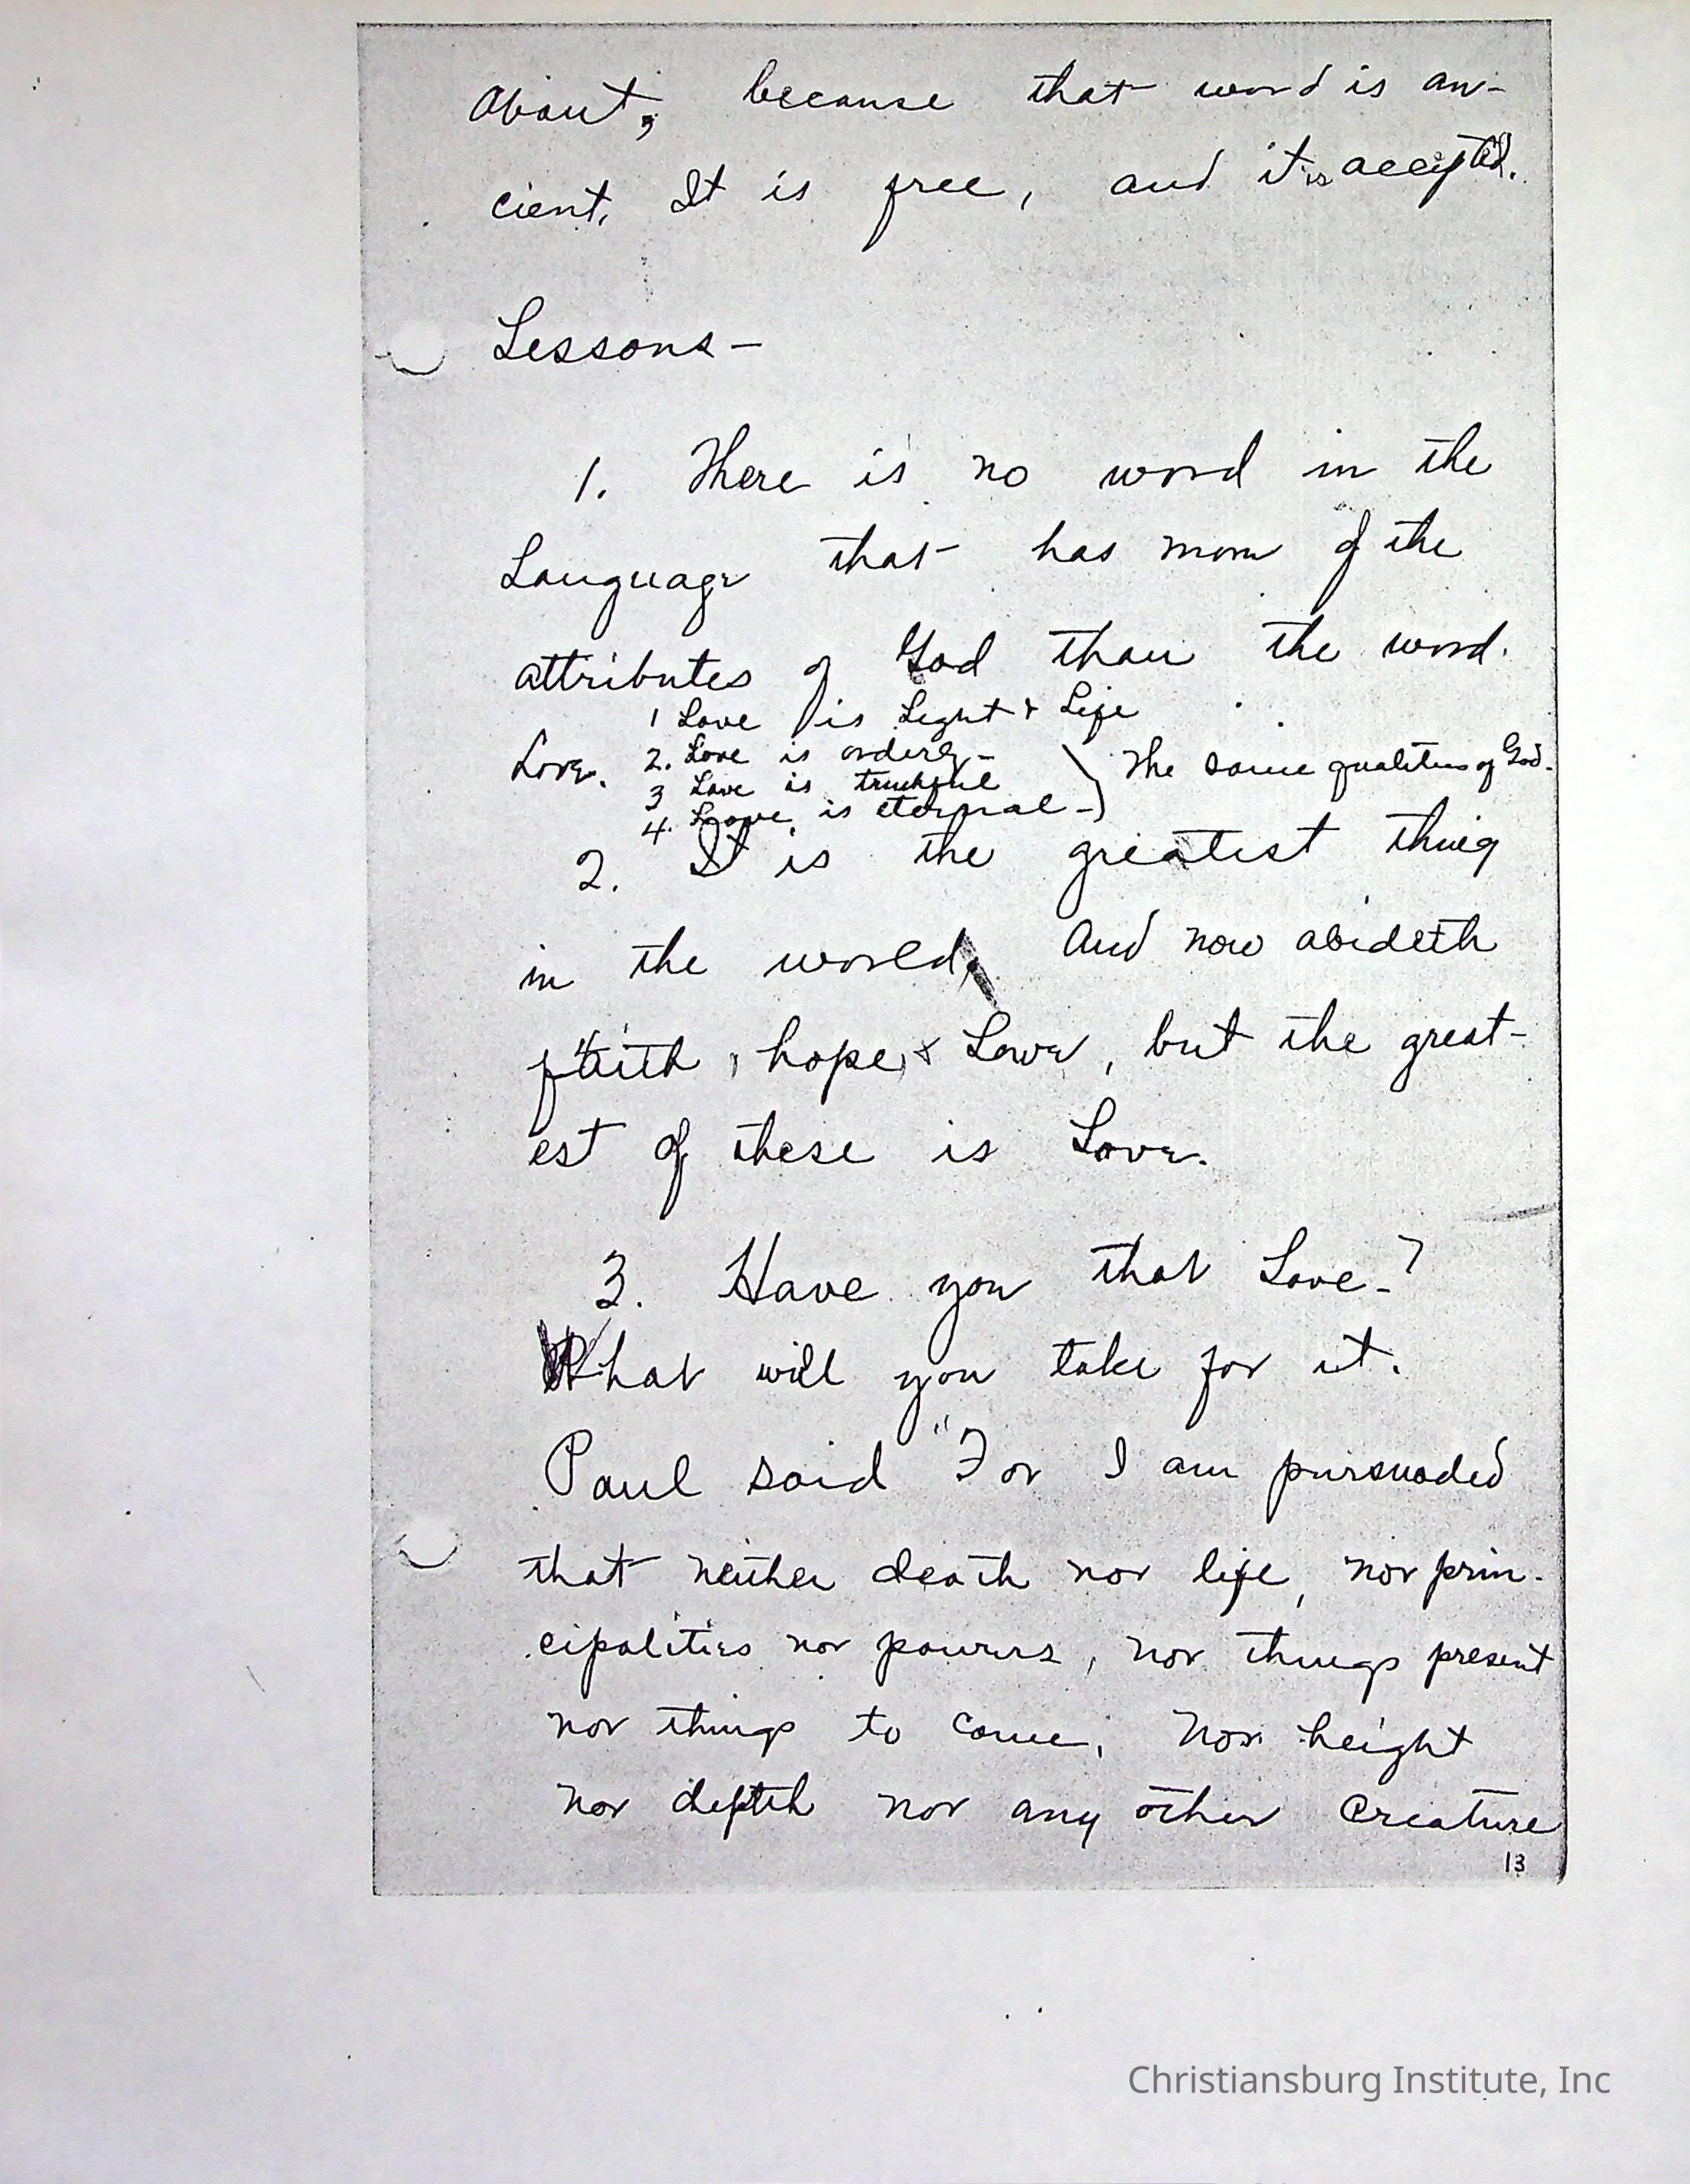 about, because that word is an-
cient. It is free, and it is accepted.
Lessons-
1. There is no word in the
Language that has more of the
attributes of God than the word.
Love. 1 Love is Light & Life
2. Love is orderly-
3 Love is truthful
4. Love is eternal-
The same qualities of God.
2. It is the greatest thing
in the world. And now abideth
faith, hope, & Love, but the great-
est of these is Love.
3. Have you that Love-?
What will you take for it.
Paul said "For I am pursuaded
that neither death nor life, nor prin-
cipalities nor powers, nor things present
nor things to come, Nor height
nor depth nor any other Creature
13
Christiansburg Institute, Inc